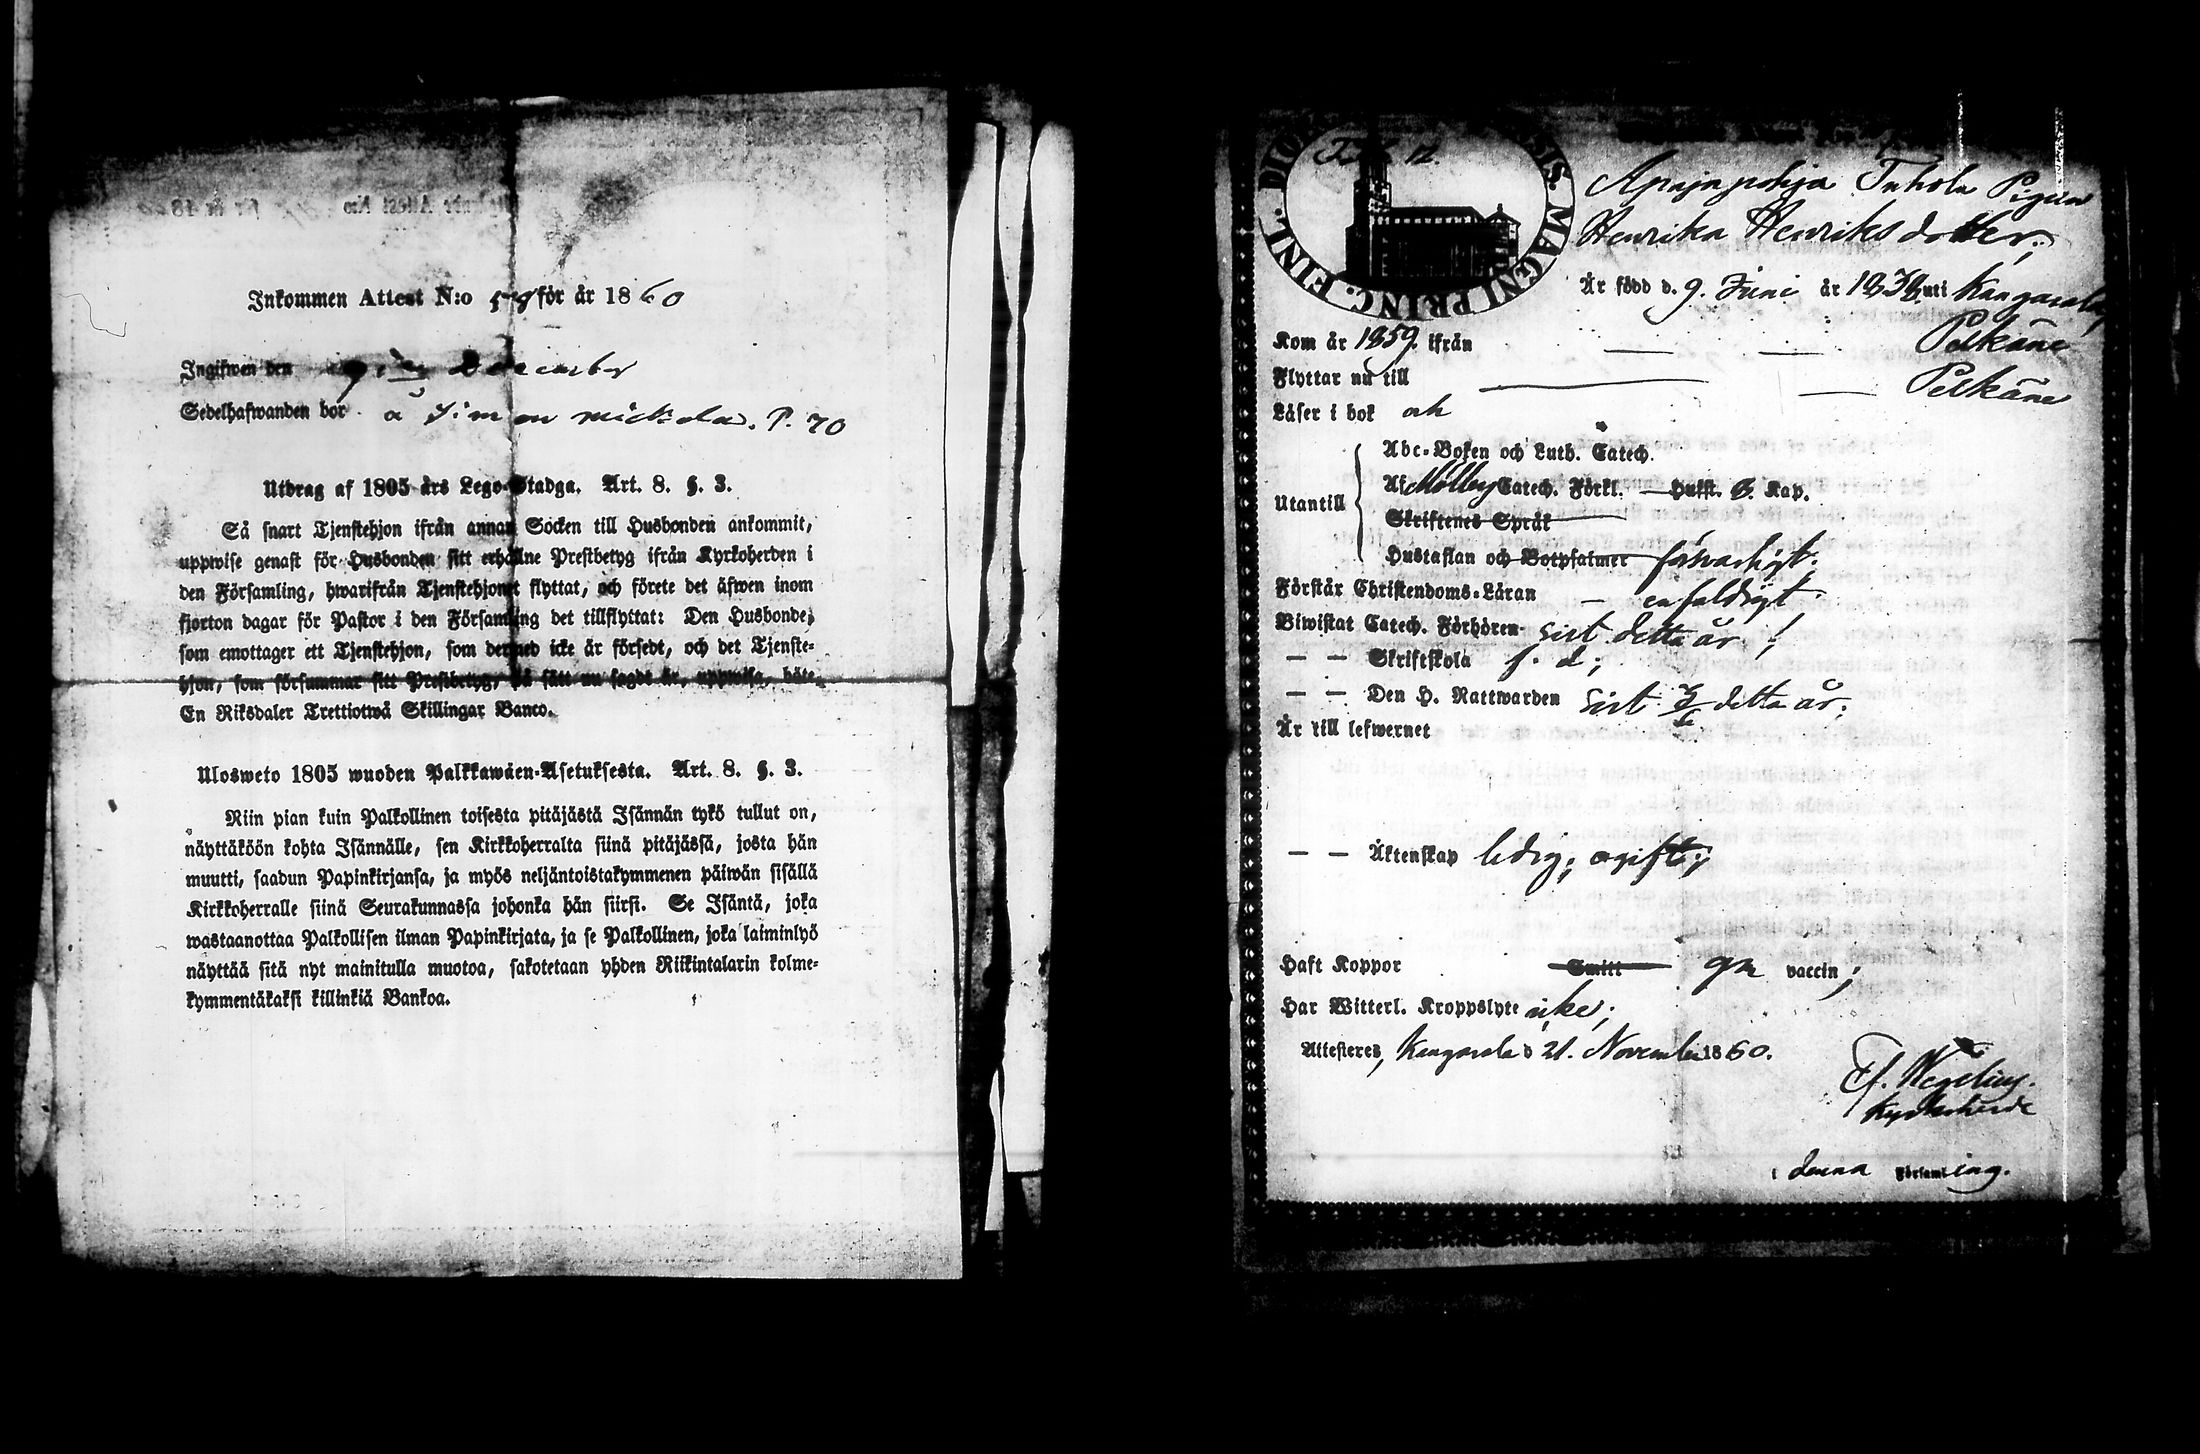 Inkommen Attest N:o 58 för år 1860
Ingifwen den 9 December
Sedelhafwanden bor å Simon mickola. P. 70
Utdrag af 1805 års Lego-Stadga. Art. 8. §. 3.
Så snart Tjenstehjon ifrån annan Socken till Husbonden ankommit,
uppwise genast för Husbonden sitt erhållne Prestbetyg ifrån Kyrkoherden i
den Församling, hwarifrån Tjenstehjonet flyttat, och förete det äfwen inom
fjorton dagar för Pastor i den Församling det tillflyttat: Den Husbonde,
som emottager ett Tjenstehjon, som dermed icke är försedt, och det Tjenste-
hjon, som försummar sitt Prestbetyg, på sätt nu sagdt är, uppwisa, böte
En Riksdaler Trettiotwå Skillingar Banco.
Ulosweto 1805 wuoden Palkkawäen-Asetuksesta. Art. 8. §. 3.
Niin pian kuin Palkollinen toisesta pitäjästä Isännän tykö tullut on,
näyttäköön kohta Isännälle, sen Kirkkoherralta siinä pitäjässä, josta hän
muutti, saadun Papinkirjansa, ja myös neljäntoistakymmenen päiwän sisällä
Kirkkoherralle siinä Seurakunnassa johonka hän siirsi. Se Isäntä, joka
wastaanottaa Palkollisen ilman Papinkirjata, ja se Palkollinen, joka laiminlyö
näyttää sitä nyt mainitulla muotoa, sakotetaan yhden Riikintalarin kolme-
kymmentäkaksi killinkiä Bankoa.
MAGNI PRINC. FINL. DIO
12.
Apajapohja Tuhola Pigan
Henrika Henriksdotter.
Är född d. 9. Juni år 1838. uti Kangasala,
Kom år 1859. ifrån — — Pelkäne
Flyttar nu till — — Pelkäne
Läser i bok
Utantill
Abc-Boken och Luth. Catech.
Af Möllers Catech. Förkl. — Husst. Kap.
Skriftenes Språk
Hustaflan och Botpsalmer försvarligt.
Förstår Christendoms-Läran — enfaldigt
Biwistat Catech. Förhören sist detta år;
— — Skriftskola s. d;
— — Den H. Nattwarden sist detta år;
Är till lefwernet
— — Äktenskap ledig; ogift;
Haft Koppor Smitt gm vaccin;
Har Witterl. Kroppslyte icke;
Attesteres, Kangasala d 21. November 1860.
Ef. Wegelius.
Kyrkoherde
i denna Församling.